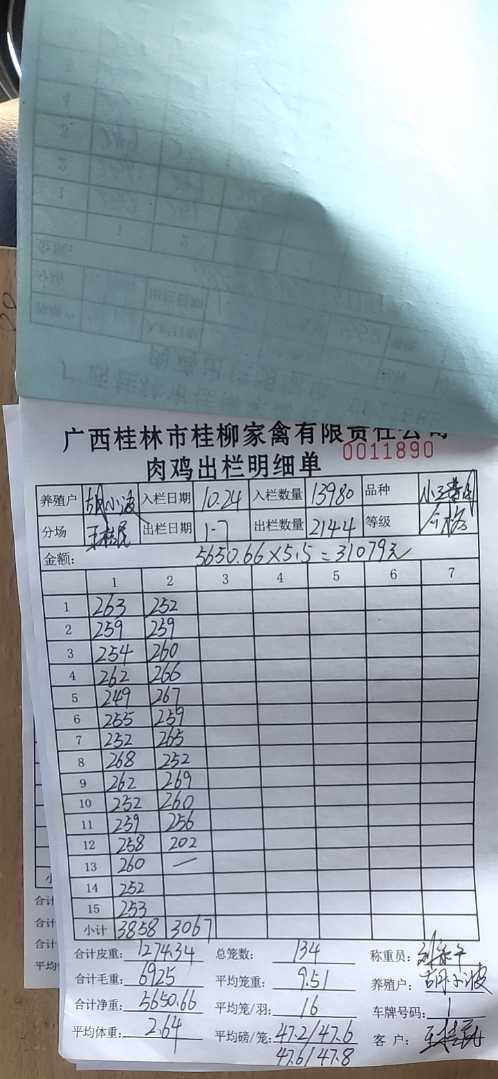 广西桂林市桂柳家禽有限责任公司
肉鸡出栏明细单 0011890
养殖户 胡小波 入栏日期 10.24 入栏数量 13980 品种
分场 出栏日期 1-7 出栏数量 2144 等级 合格
金额: 5650.66×5.5=31079元
1 2 3 4 5 6 7
1 263 252
2 259 259
3 254 260
4 262 266
5 249 267
6 255 259
7 252 265
8 268 252
9 262 269
10 252 260
11 259 256
12 258 202
13 260 —
14 252
15 253
小计 3858 3067
合计皮重: 1274.34 总笼数: 134 称重员:
合计毛重: 6925 平均笼重: 9.51 养殖户: 胡小波
合计净重: 5650.66 平均笼/羽: 16 车牌号码: 1
平均体重: 2.64 平均磅/笼: 47.2/47.6 客户:
47.6/47.8